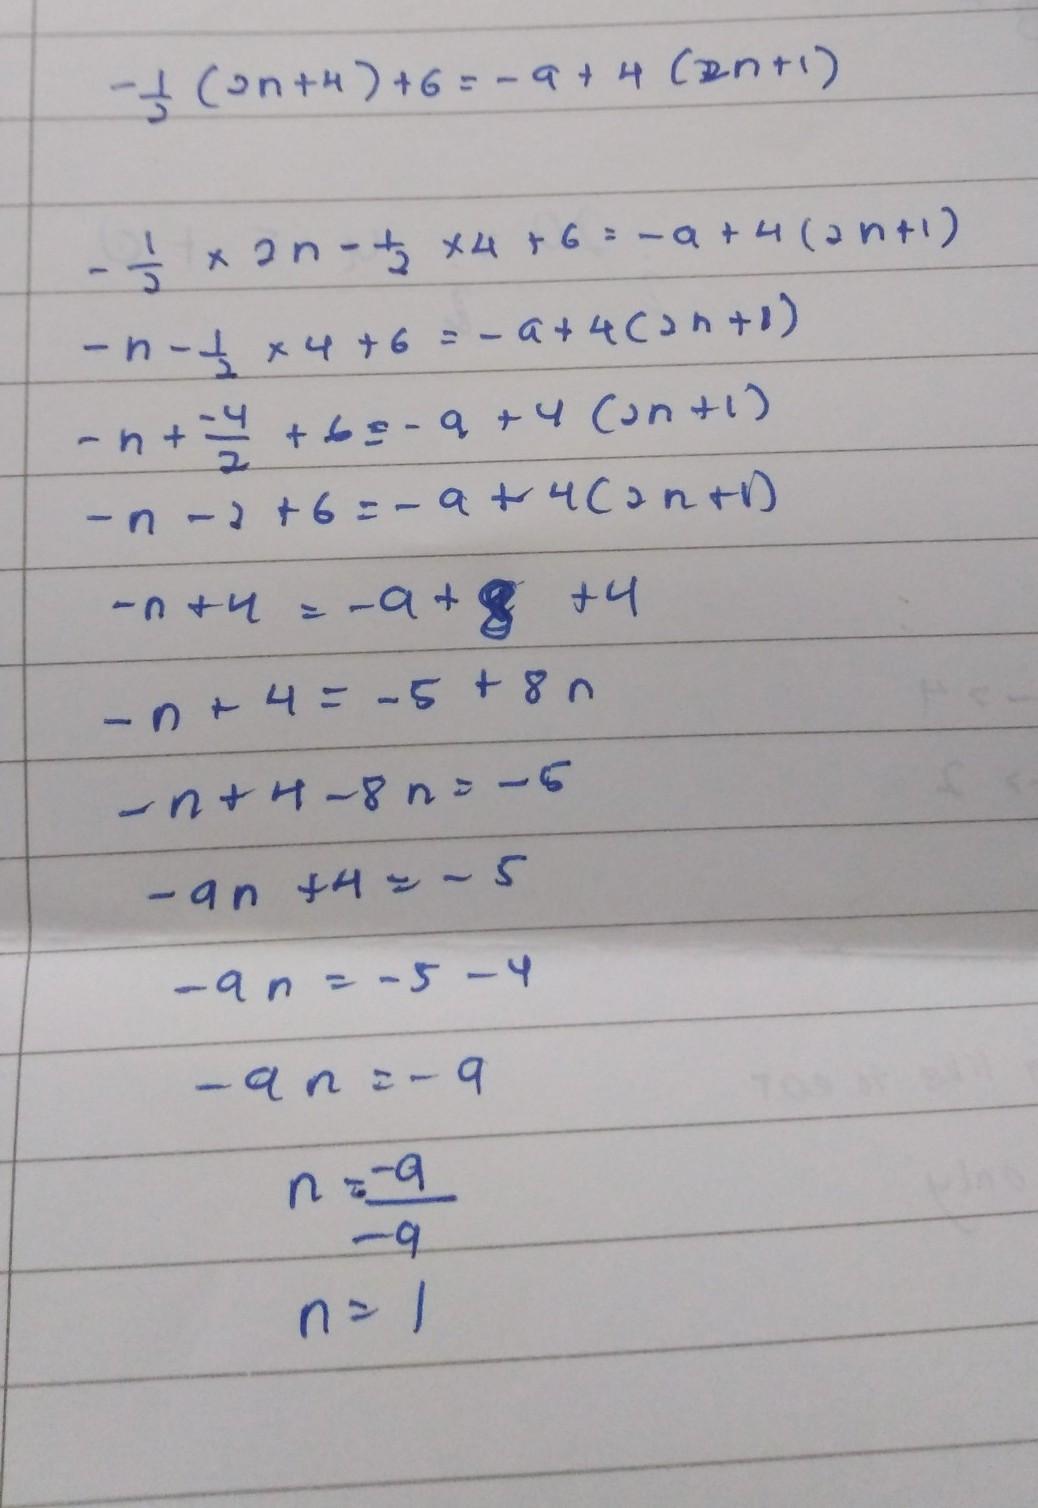 -1/2 (2n+4)+6=-9+4(2n+1)
-1/2 × 2n-1/2 ×4+6=-9+4(2n+1)
-n-1/2 ×4+6=-9+4(2n+1)
-n+-4/2+6=-9+4(2n+1)
-n-2+6=-9+4(2n+1)
-n+4=-9+8 +4
-n+4=-5+8n
-n+4-8n=-5
-9n+4=-5
-9n=-5-4
-9n=-9
n=-9/-9
n=1